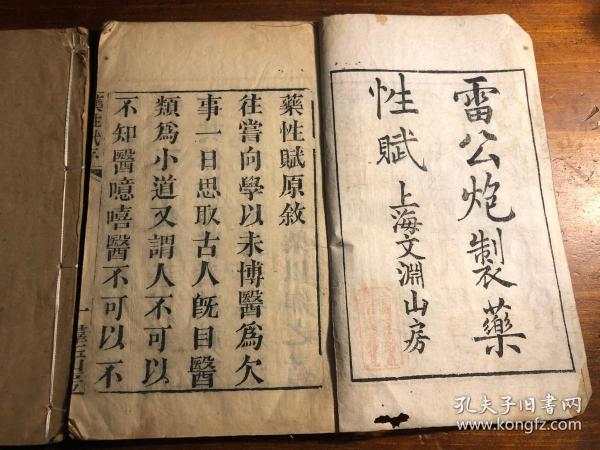 雷公炮製藥
性賦
上海文淵山房
藥性賦原敘
往嘗向學以未博醫為欠
事一日思取古人旣目醫
類為小道又謂人不可以
不知醫噫嘻醫不可以不
藥性賦序
一
孔夫子旧书网
www.kongfz.com